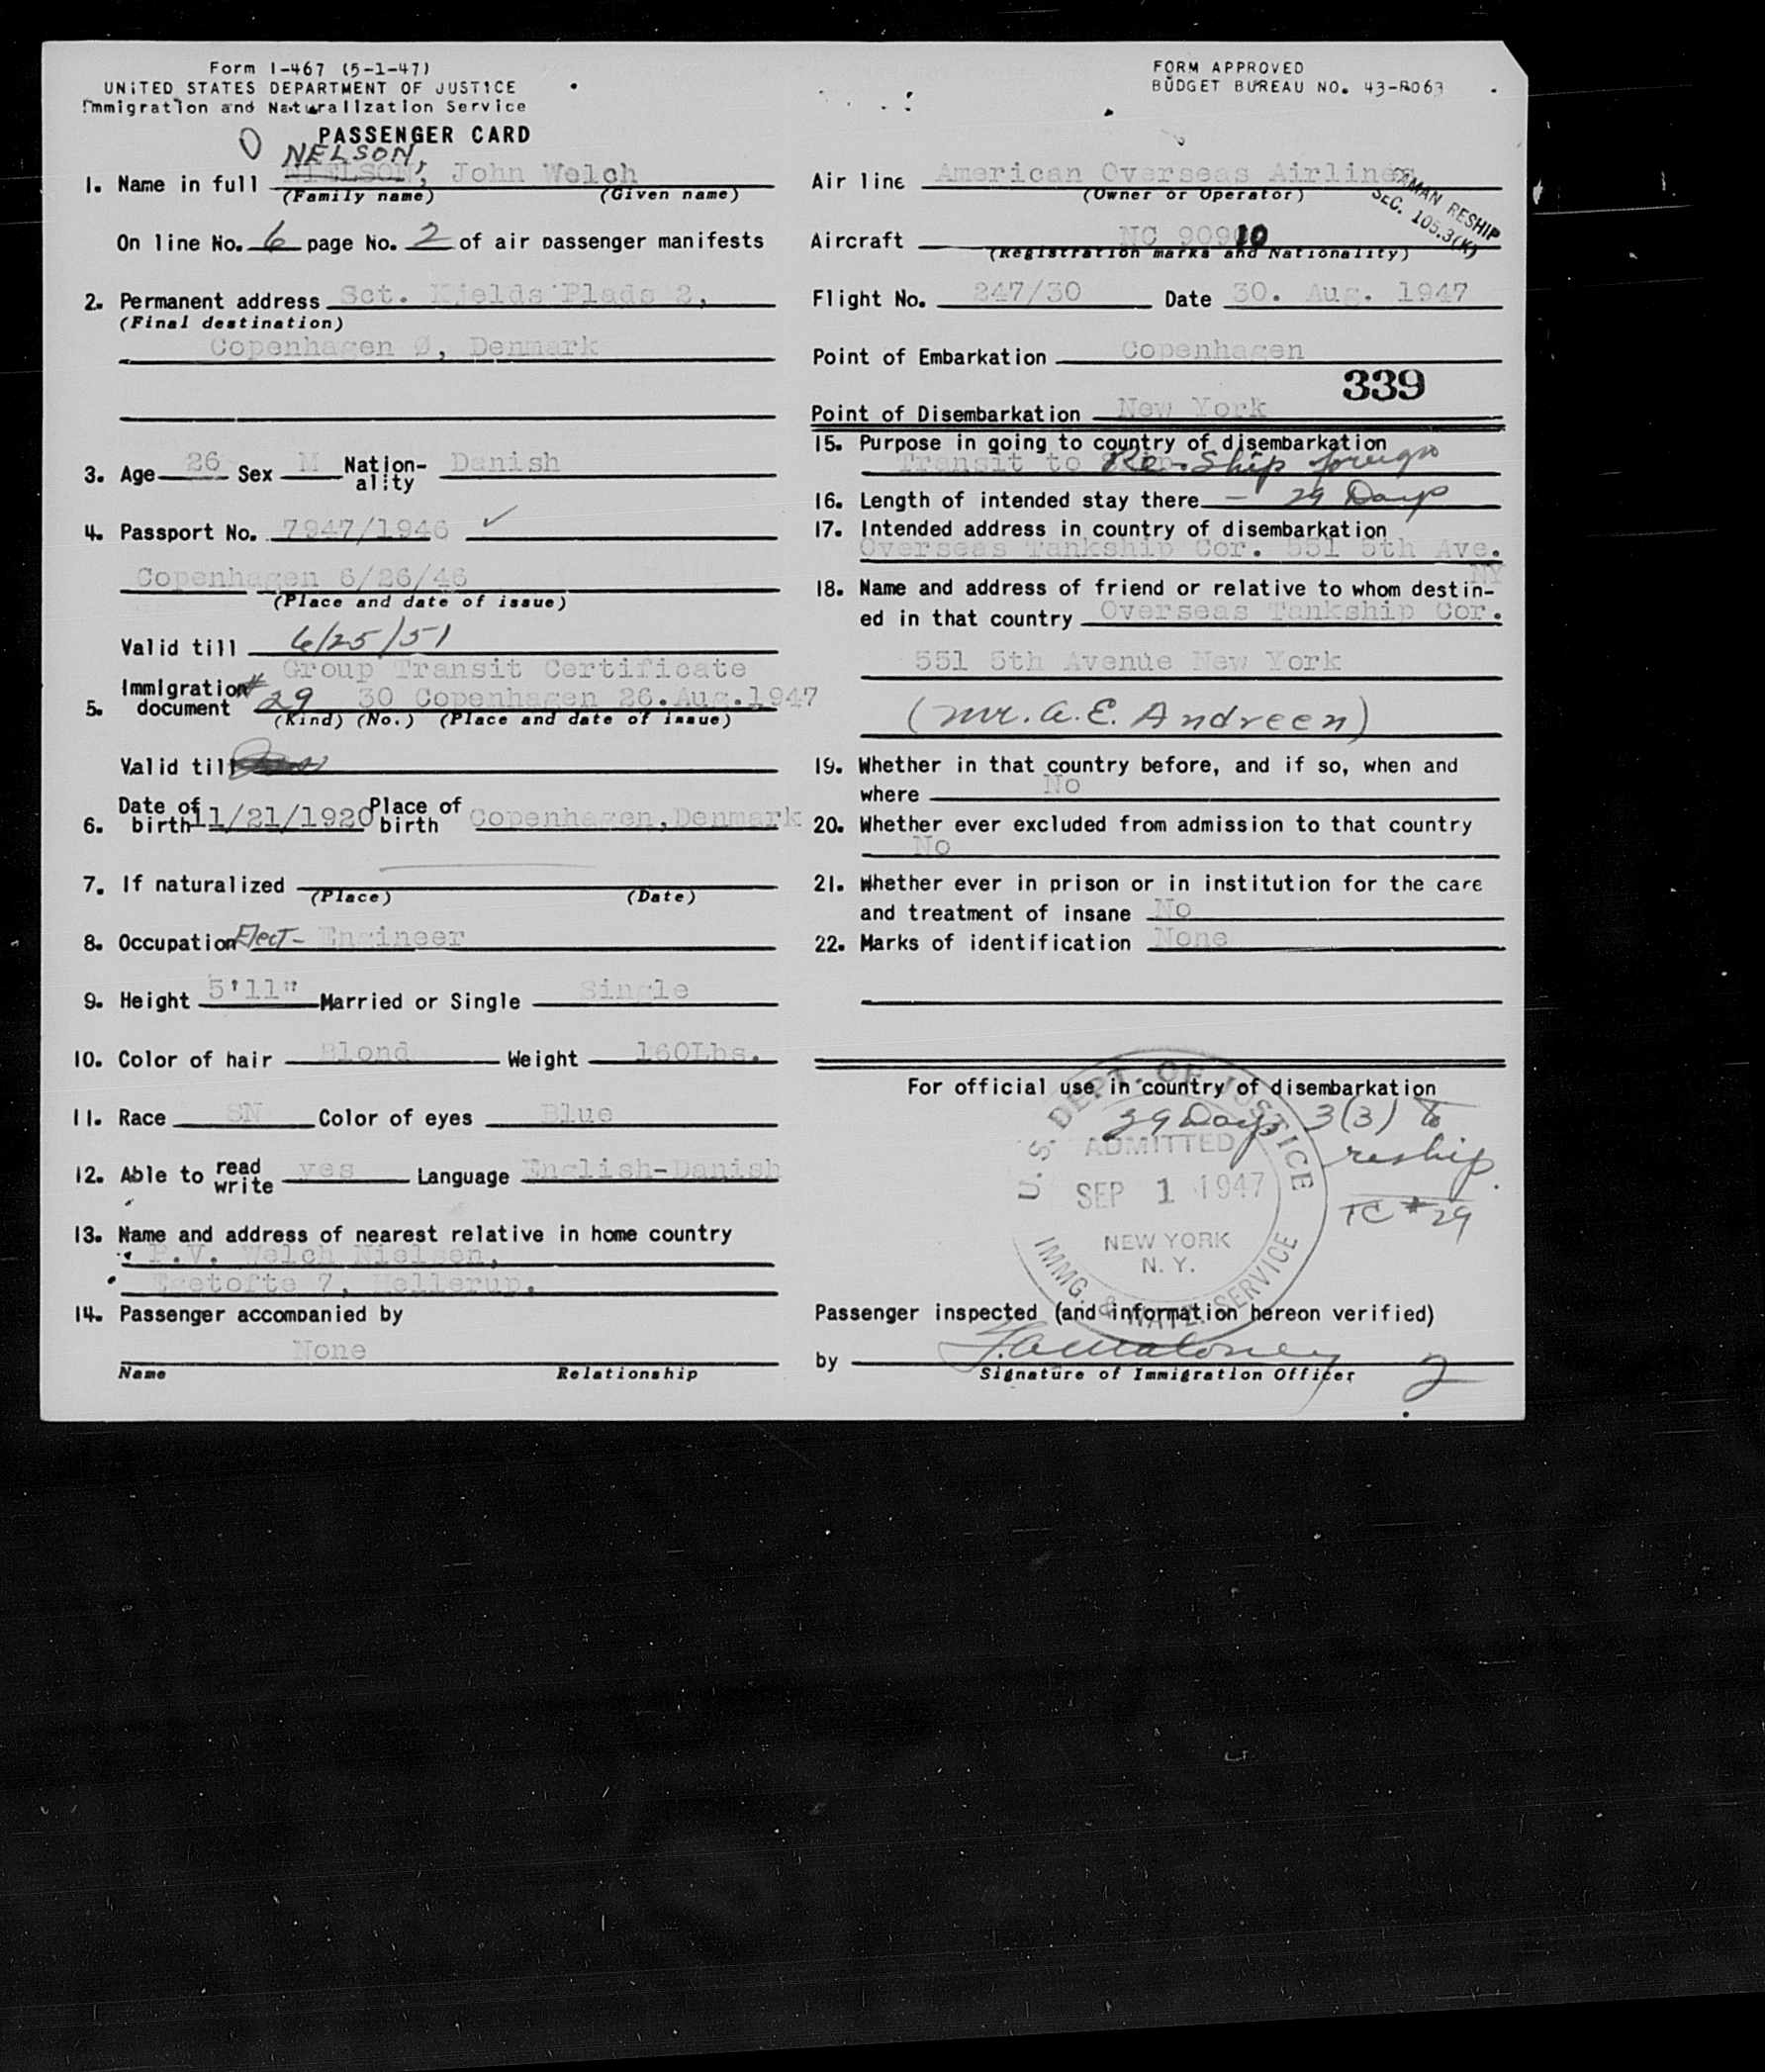 Form I-467 (5-1-47)
UNITED STATES DEPARTMENT OF JUSTICE
Immigration and Naturalization Service
PASSENGER CARD
NELSON,
1. Name in full NIELSON, John Welch
(Family name) (Given name)
On line No. 6 page No. 2 of air passenger manifests
2. Permanent address Sct. Kjelds Plads 2,
(Final destination)
Copenhagen Ø, Denmark
3. Age 26 Sex M Nationality Danish
4. Passport No. 7947/1946 ✓
Copenhagen 6/26/46
(Place and date of issue)
Valid till 6/25/51
Group Transit Certificate
5. Immigration document #29 30 Copenhagen 26.Aug.1947
(Kind) (No.) (Place and date of issue)
Valid till
6. Date of birth 11/21/1920 Place of birth Copenhagen, Denmark
7. If naturalized
(Place) (Date)
8. Occupation Elect- Engineer
9. Height 5'11" Married or Single Single
10. Color of hair Blond Weight 160Lbs.
11. Race SN Color of eyes Blue
12. Able to read write yes Language English-Danish
13. Name and address of nearest relative in home country
P.V. Welch Nielsen,
7, Hellerup.
14. Passenger accompanied by
None
Name Relationship
FORM APPROVED
BUDGET BUREAU NO. 43-R063
Air line American Overseas Airlines
(Owner or Operator)
RESHIP
SEC. 105.3(K)
Aircraft NC 90910
(Registration marks and Nationality)
Flight No. 247/30 Date 30. Aug. 1947
Point of Embarkation Copenhagen
339
Point of Disembarkation New York
15. Purpose in going to country of disembarkation
Transit to Re-Ship foreign
16. Length of intended stay there - 29 Days
17. Intended address in country of disembarkation
Overseas Tankship Cor. 551 5th Ave.
NY
18. Name and address of friend or relative to whom destin-
ed in that country Overseas Tankship Cor.
551 5th Avenue New York
(Mr. A. E. Andreen)
19. Whether in that country before, and if so, when and
where No
20. Whether ever excluded from admission to that country
No
21. Whether ever in prison or in institution for the care
and treatment of insane No
22. Marks of identification None
For official use in country of disembarkation
29 Days 3(3) to
reship.
TC #29
U.S. DEPT. OF JUSTICE
ADMITTED
SEP 1 1947
NEW YORK
N. Y.
IMMG. & NATZ. SERVICE
Passenger inspected (and information hereon verified)
by Maloney 2
Signature of Immigration Officer